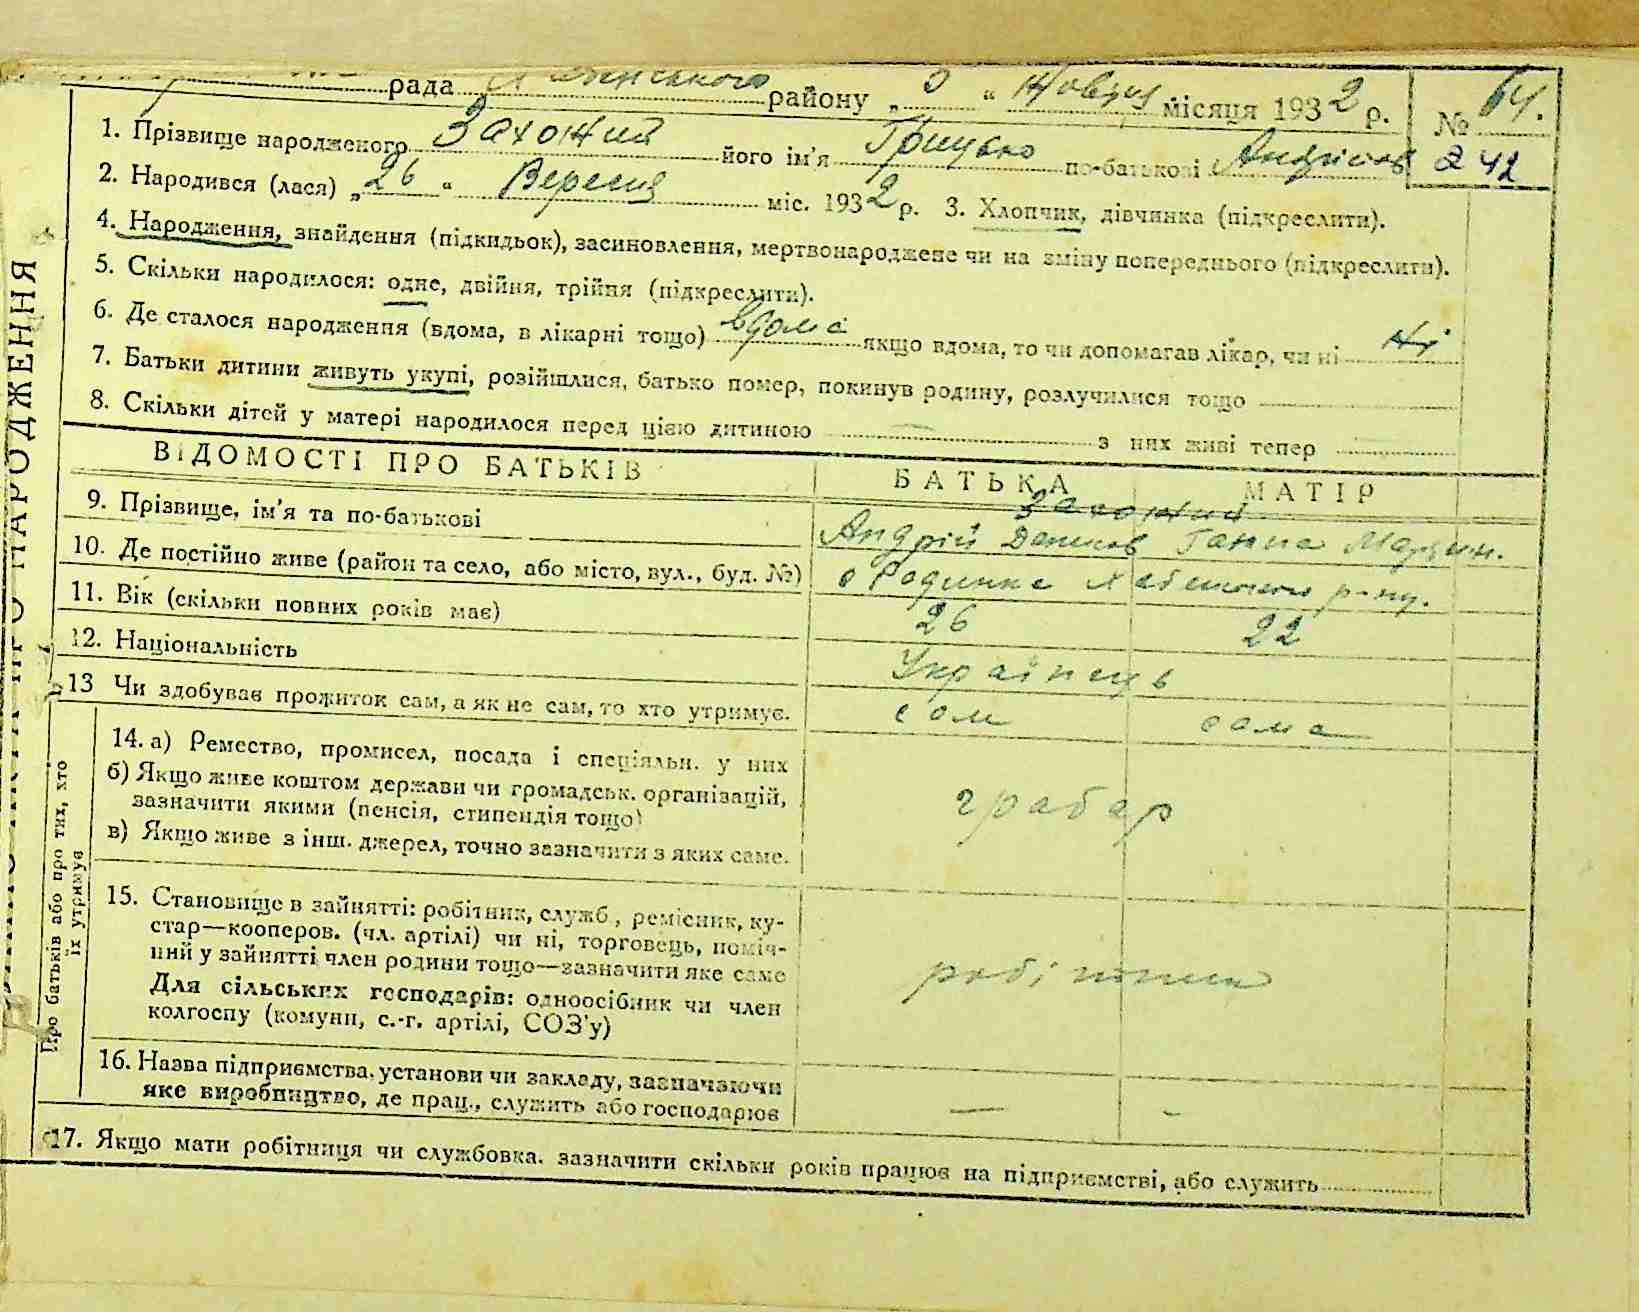 рада Хабенського району „ 5 “ Жовтня місяця 1932 р. № 64.
1. Прізвище народженого Захожий його ім'я Грицько по-батькові Андрієв 242
2. Народився (лася) „ 26 “ Вересня міс. 1932 р. 3. Хлопчик, дівчинка (підкреслити).
4. Народження, знайдення (підкидьок), засиновлення, мертвонароджене чи на зміну попереднього (підкреслити).
5. Скільки народилося: одне, двійня, трійня (підкреслити).
6. Де сталося народження (вдома, в лікарні тощо) вдома якщо вдома, то чи допомагав лікар, чи ні ні
7. Батьки дитини живуть укупі, розійшлися, батько помер, покинув родину, розлучилися тощо
8. Скільки дітей у матері народилося перед цією дитиною — з них живі тепер
ВІДОМОСТІ ПРО БАТЬКІВ БАТЬКА МАТІР
Захожий
9. Прізвище, ім'я та по-батькові Андрій Данилов Ганна Мартин.
10. Де постійно живе (район та село, або місто, вул., буд. №) с Радинка Хабенського р-ну.
11. Вік (скільки повних років має) 26 22
12. Національність Українець
13 Чи здобуває прожиток сам, а як не сам, то хто утримує. сам сама
Про батьків або про тих, хто
їх утримує
14. а) Ремество, промисел, посада і спеціяльн. у них
б) Якщо живе коштом держави чи громадськ. організацій,
зазначити якими (пенсія, стипендія тощо)
грабар
в) Якщо живе з інш. джерел, точно зазначити з яких саме.
15. Становище в зайнятті: робітник, служб., ремісник, ку-
стар—кооперов. (чл. артілі) чи ні, торговець, поміч-
ний у зайнятті член родини тощо—зазначити яке саме
робітник
Для сільських господарів: одноосібник чи член
колгоспу (комуни, с.-г. артілі, СОЗ'у)
16. Назва підприємства, установи чи закладу, зазначаючи
яке виробництво, де прац., служить або господарює — -
17. Якщо мати робітниця чи службовка, зазначити скільки років працює на підприємстві, або служить